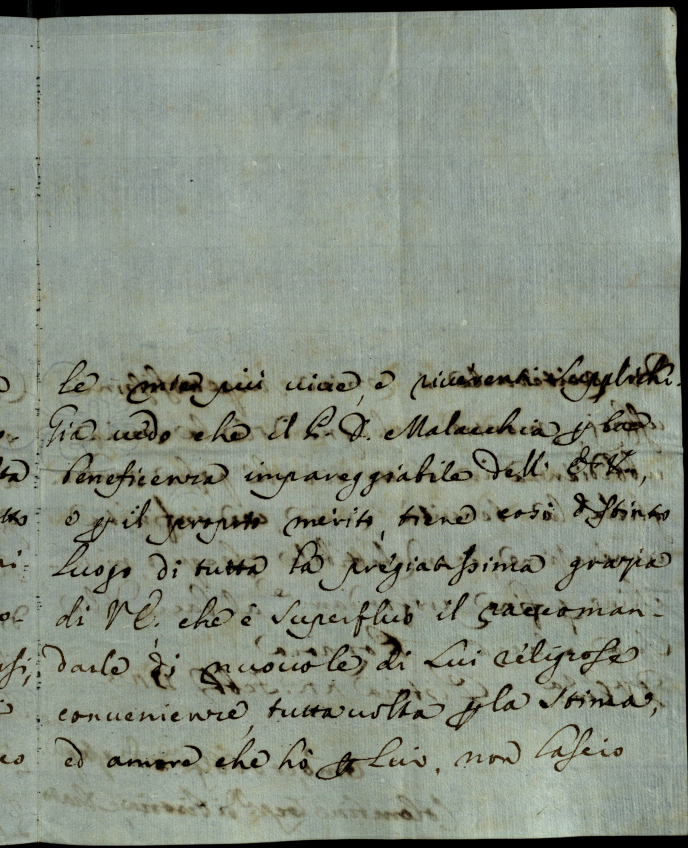 le mie più vive, e riverenti suppliche.
Già vedo che il P. D. Malacchia p la
beneficenza impareggiabile dell' E. V.,
e p il proprio merito, tiene così distinto
luogo di tutta la pregiatissima grazia
di V. E. che è superfluo il raccoman-
darle di nuovo le di Lui religiose
convenienze, tutta volta p la stima,
ed amore che hò p Lui, non lascio